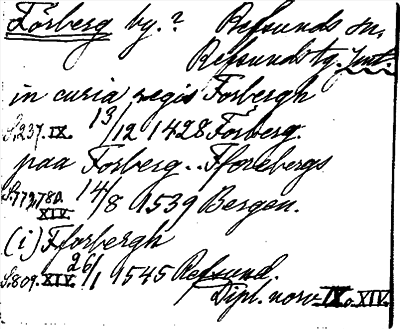 Forberg by.? Refsunds sn,
Refsunds tg. Jmtl.
in curia regis Forbergh
S. 237. IX. 13/12 1428 Forberg.
paa Forberg.. Fforebergs
S. 779, 780. XIV. 14/8 1539 Bergen.
(i) Fforbergh
S. 809. XIV. 26/1 1545 Refsund.
Dipl. norv. IX o. XIV.